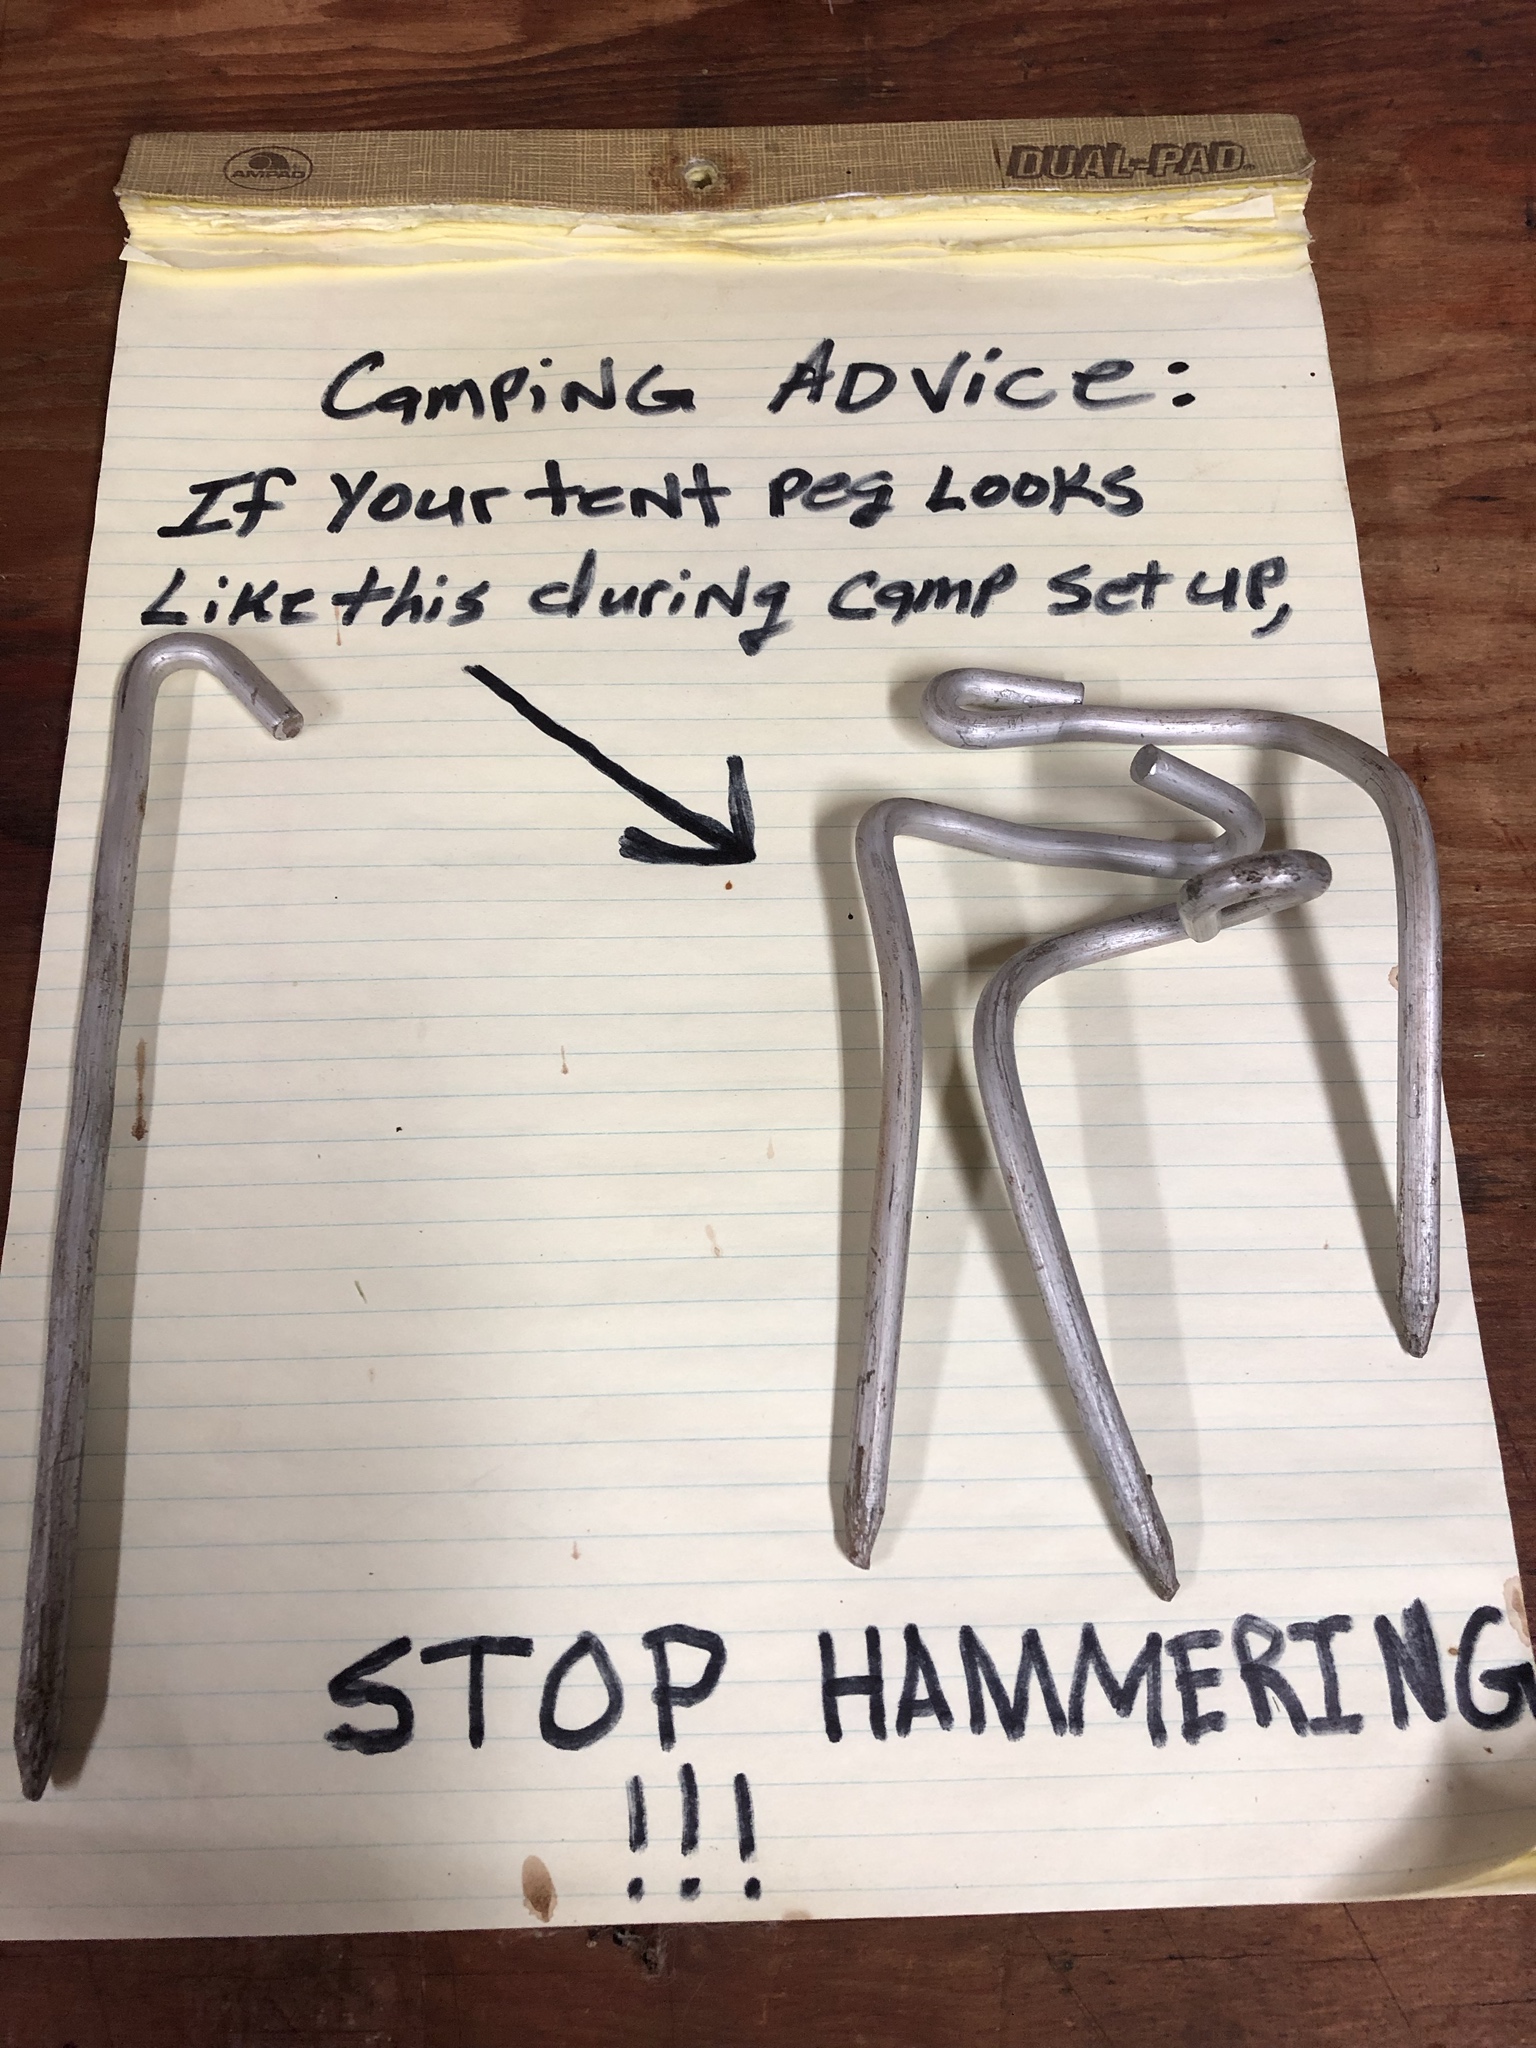 AMPAD
DUAL-PAD®
Camping Advice:
If your tent peg Looks
Like this during camp set up,
STOP HAMMERING
!!!